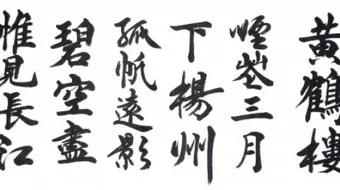 黃鶴樓
煙三月
下楊州
孤帆遠影
碧空盡
惟見長江